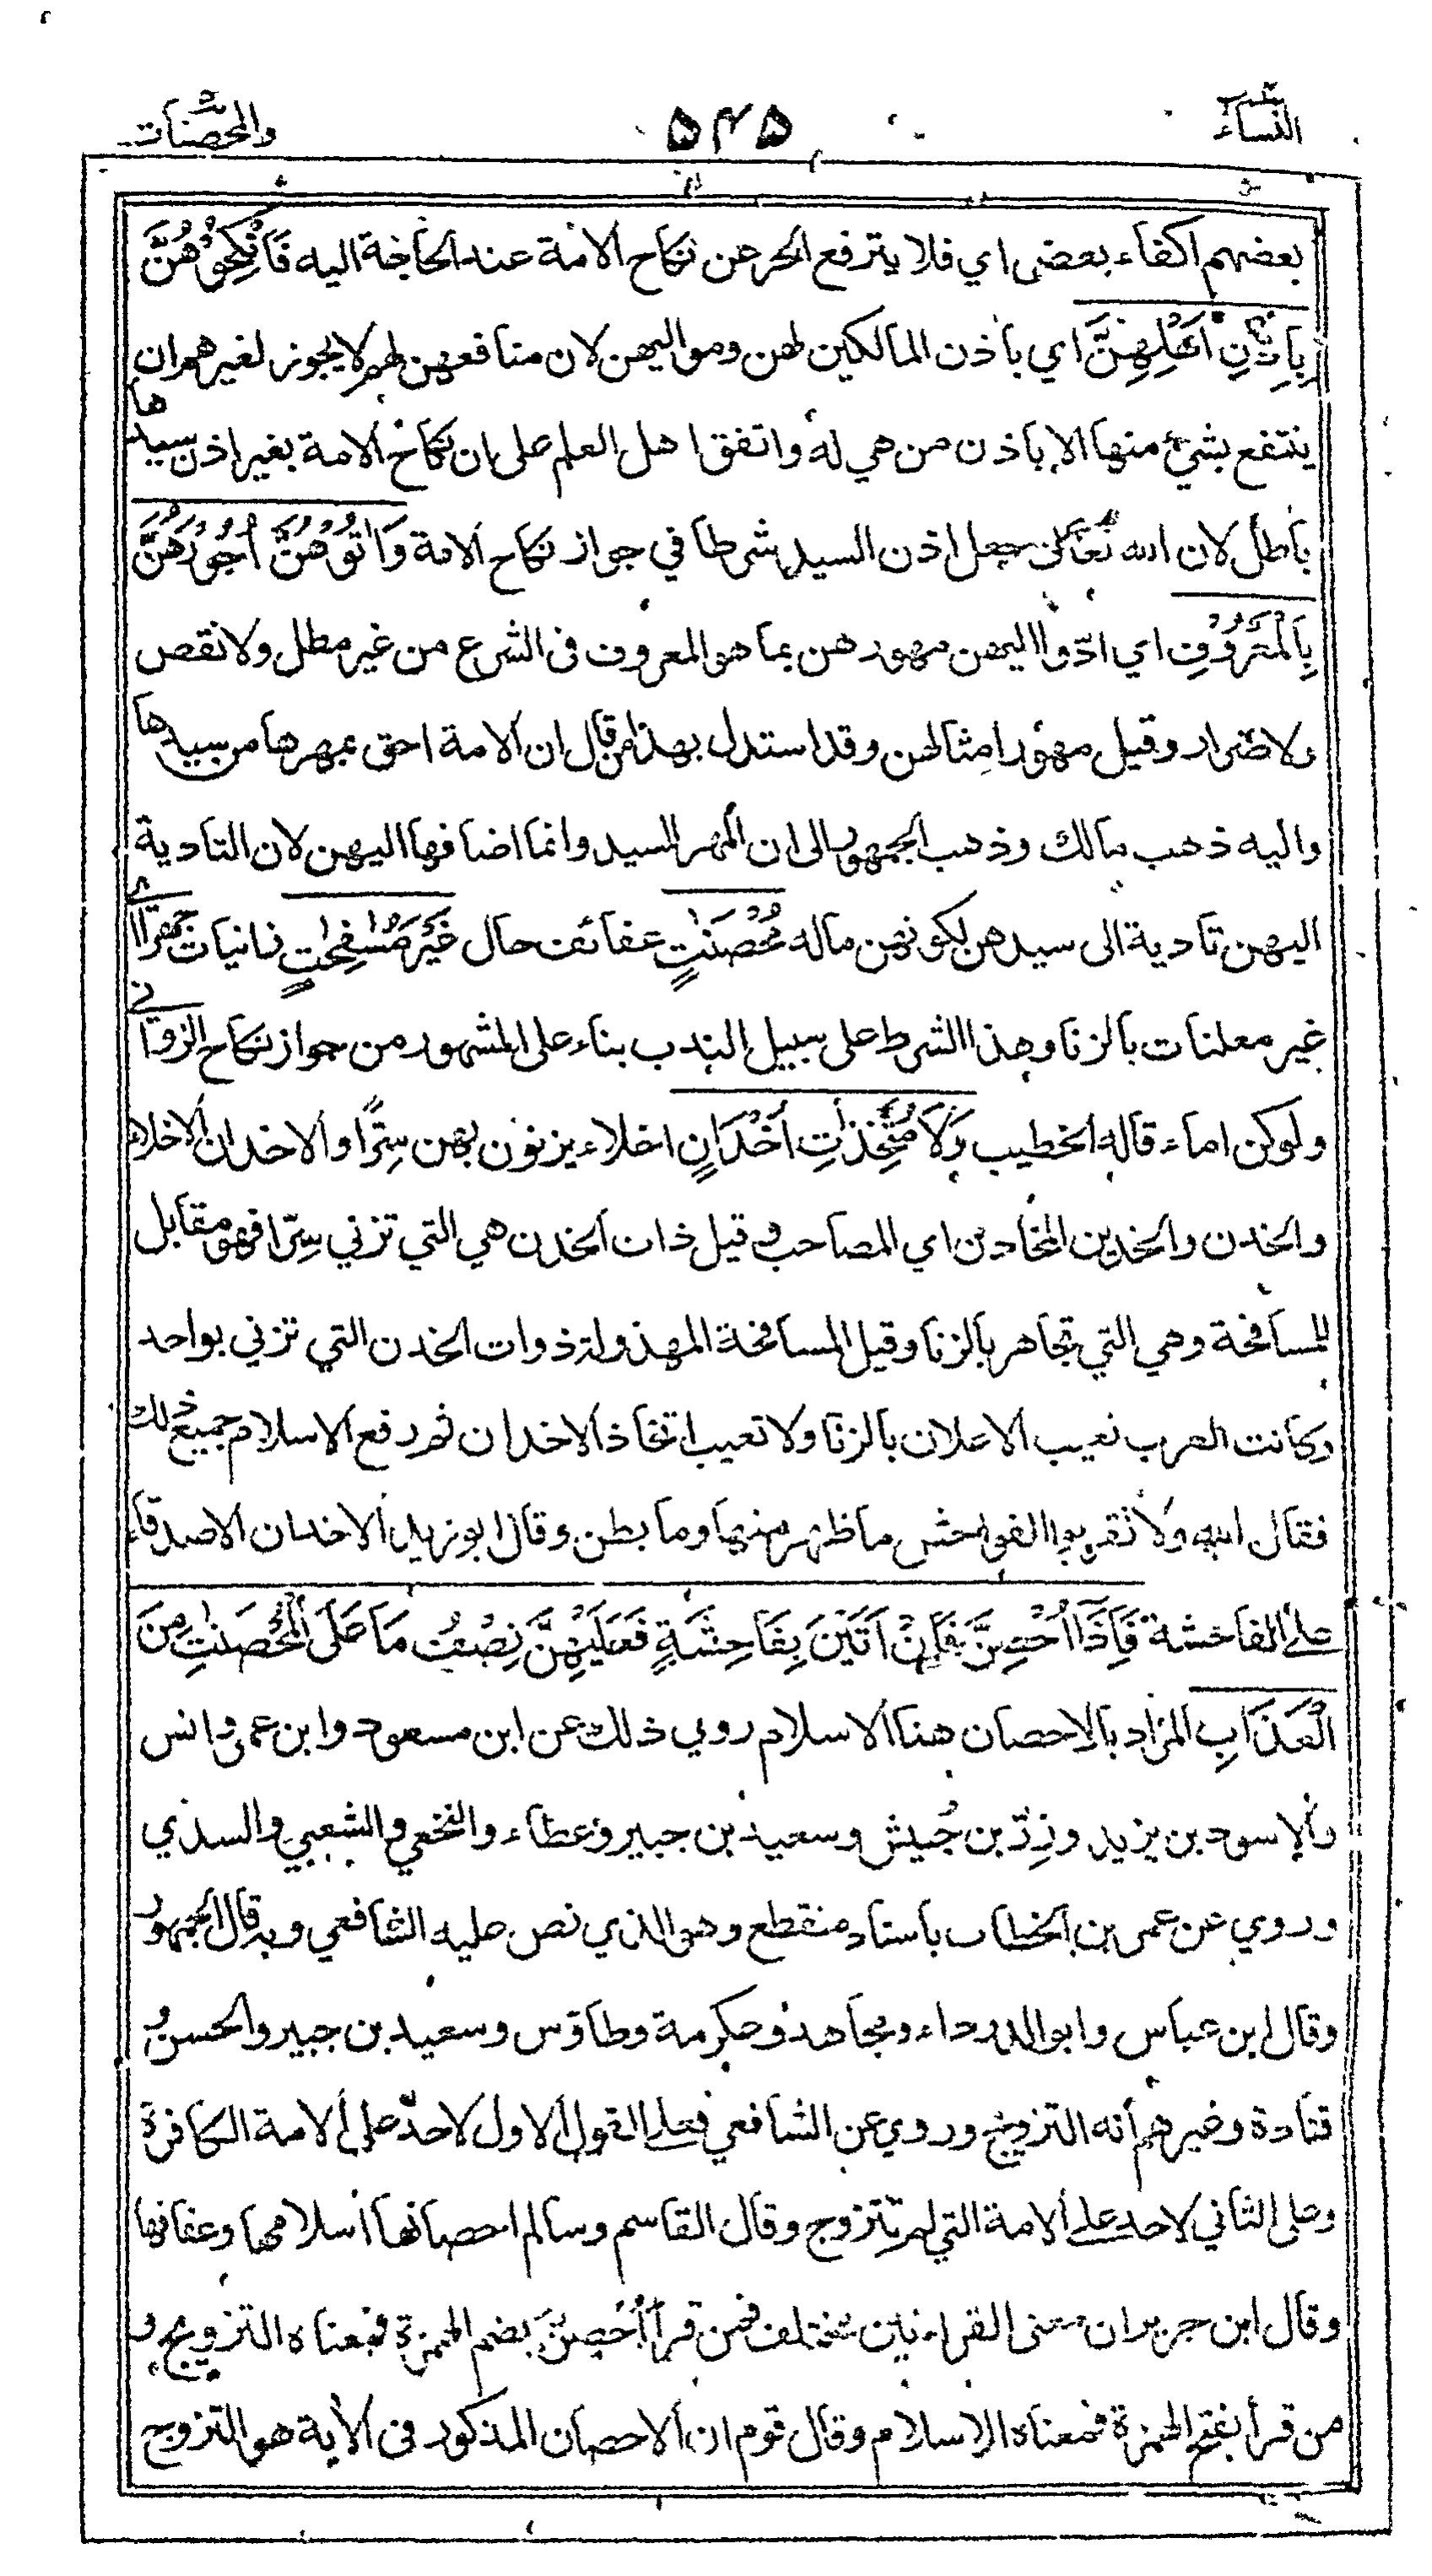 النساء ٥٤٥ والمحصنات
بعضهم اكفاء بعض اي فلا يترفع الحر عن نكاح الامة عند الحاجة اليه فَانْكِحُوْهُنَّ
بِاِذْنِ اَهْلِهِنَّ اي باذن المالكين لهن ومواليهن لان منافعهن لهم لا يجوز لغيرهم ان
ينتفع بشيء منها الا باذن من هي له واتفق اهل العلم على ان نكاح الامة بغير اذن سيدها
باطل لان الله تعالى جعل اذن السيد شرطا في جواز نكاح الامة وَاٰتُوْهُنَّ اُجُوْرَهُنَّ
بِالْمَعْرُوْفِ اي ادّوا اليهن مهورهن بما هو المعروف فى الشرع من غير مطل ولا نقص
ولا ضرار وقيل مهور امثالهن وقد استدل بهذا من قال ان الامة احق بمهرها من سيدها
واليه ذهب مالك وذهب الجمهور الى ان المهر للسيد وانما اضافها اليهن لان التادية
اليهن تادية الى سيدهن لكونهن ماله مُحْصَنٰتٍ عفائف حال غَيْرَ مُسٰفِحٰتٍ زانيات جهرًا اي
غير معلنات بالزنا وهذا الشرط على سبيل الندب بناء على المشهور من جواز نكاح الزواني
ولو كن اماء قاله الخطيب وَلَا مُتَّخِذٰتِ اَخْدَانٍ اخلاء يزنون بهن سِرًّا والاخدان الاخلاء
والخدن والخدين المخادن اي المصاحب وقيل ذات الخدن هي التي تزني سِرّا فهو مقابل
المسافحة وهي التي تجاهر بالزنا وقيل المسافحة المبذولة وذوات الخدن التي تزني بواحد
وكانت العرب تعيب الاعلان بالزنا ولا تعيب اتخاذ الاخدان ثم رفع الاسلام جميع ذلك
فقال الله ولا تقربوا الفواحش ما ظهر منها وما بطن وقال ابو زيد الاخدان الاصدقاء
على الفاحشة فَاِذَآ اُحْصِنَّ فَاِنْ اَتَيْنَ بِفَاحِشَةٍ فَعَلَيْهِنَّ نِصْفُ مَا عَلَى الْمُحْصَنٰتِ مِنَ
الْعَذَابِ المراد بالاحصان هنا الاسلام روي ذلك عن ابن مسعود وابن عمر وانس
والاسود بن يزيد وزِرّ بن حُبيش وسعيد بن جبير وعطاء والنخعي والشعبي والسدي
وروي عن عمر بن الخطاب باسناد منقطع وهو الذي نص عليه الشافعي وبه قال الجمهور
وقال ابن عباس وابو الدرداء ومجاهد وعكرمة وطاؤس وسعيد بن جبير والحسن و
قتادة وغيرهم أنه التزويج وروي عن الشافعي فعلى القول الاول لا حدّ على الامة الكافرة
وعلى الثاني لا حد على الامة التي لم تتزوج وقال القاسم وسالم احصانها اسلامها وعفافها
وقال ابن جرير ان معنى القراءتين مختلف فمن قرأ أُحْصِنَّ بضم الهمزة فمعناه التزويج و
من قرأ بفتح الهمزة فمعناه الاسلام وقال قوم ان الاحصان المذكور فى الأية هو التزوج